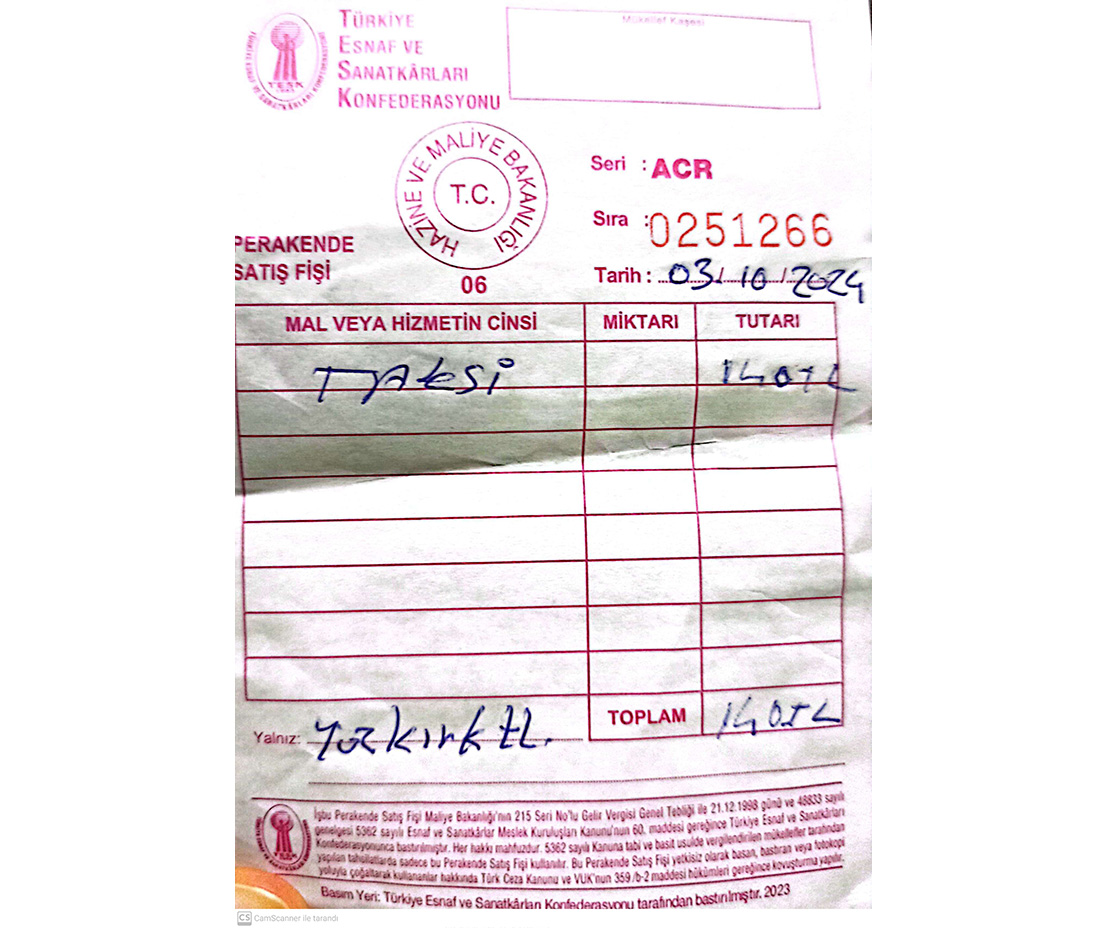 TÜRKİYE
ESNAF VE
SANATKÂRLARI
KONFEDERASYONU
Mükellef Kaşesi
TESK
HAZİNE VE MALİYE BAKANLIĞI
T.C.
06
Seri : ACR
Sıra : 0251266
Tarih : 03/10/2024
PERAKENDE
SATIŞ FİŞİ
MAL VEYA HİZMETİN CİNSİ MİKTARI TUTARI
TAKSİ 140TL
TOPLAM 140TL
Yalnız: Yüzkırk TL.
İşbu Perakende Satış Fişi Maliye Bakanlığı'nın 215 Seri No'lu Gelir Vergisi Genel Tebliği ile 21.12.1998 günü ve 48833 sayılı
genelgesi 5362 sayılı Esnaf ve Sanatkârlar Meslek Kuruluşları Kanunu'nun 60. maddesi gereğince Türkiye Esnaf ve Sanatkârları
Konfederasyonunca bastırılmıştır. Her hakkı mahfuzdur. 5362 sayılı Kanuna tabi ve basit usulde vergilendirilen mükellefler tarafından
yapılan tahsilatlarda sadece bu Perakende Satış Fişi kullanılır. Bu Perakende Satış Fişi yetkisiz olarak basan, bastıran veya fotokopi
yoluyla çoğaltarak kullananlar hakkında Türk Ceza Kanunu ve VUK'nun 359/b-2 maddesi hükümleri gereğince kovuşturma yapılır.
Basım Yeri: Türkiye Esnaf ve Sanatkârları Konfederasyonu tarafından bastırılmıştır. 2023
CS CamScanner ile tarandı